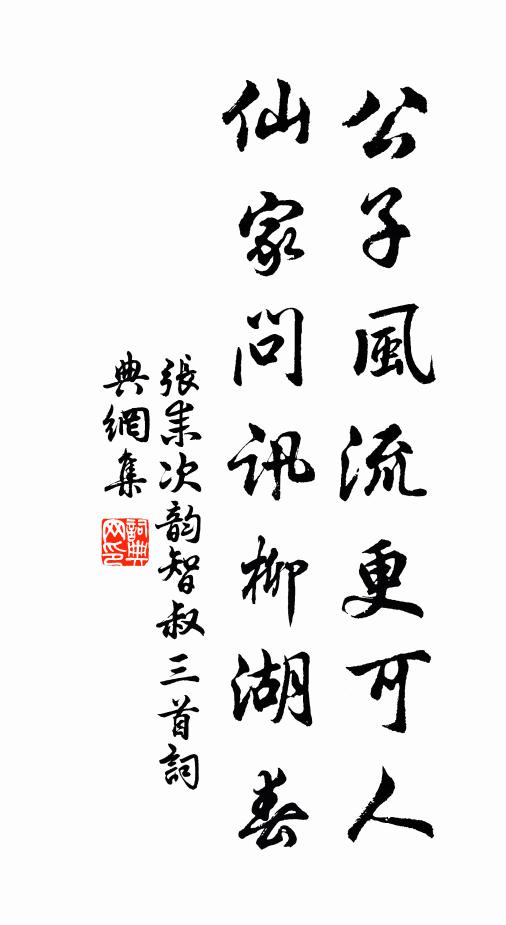 公子風流更可人
仙家問訊柳湖春
張耒次韵智叔三首詞
典網集
詞典网印